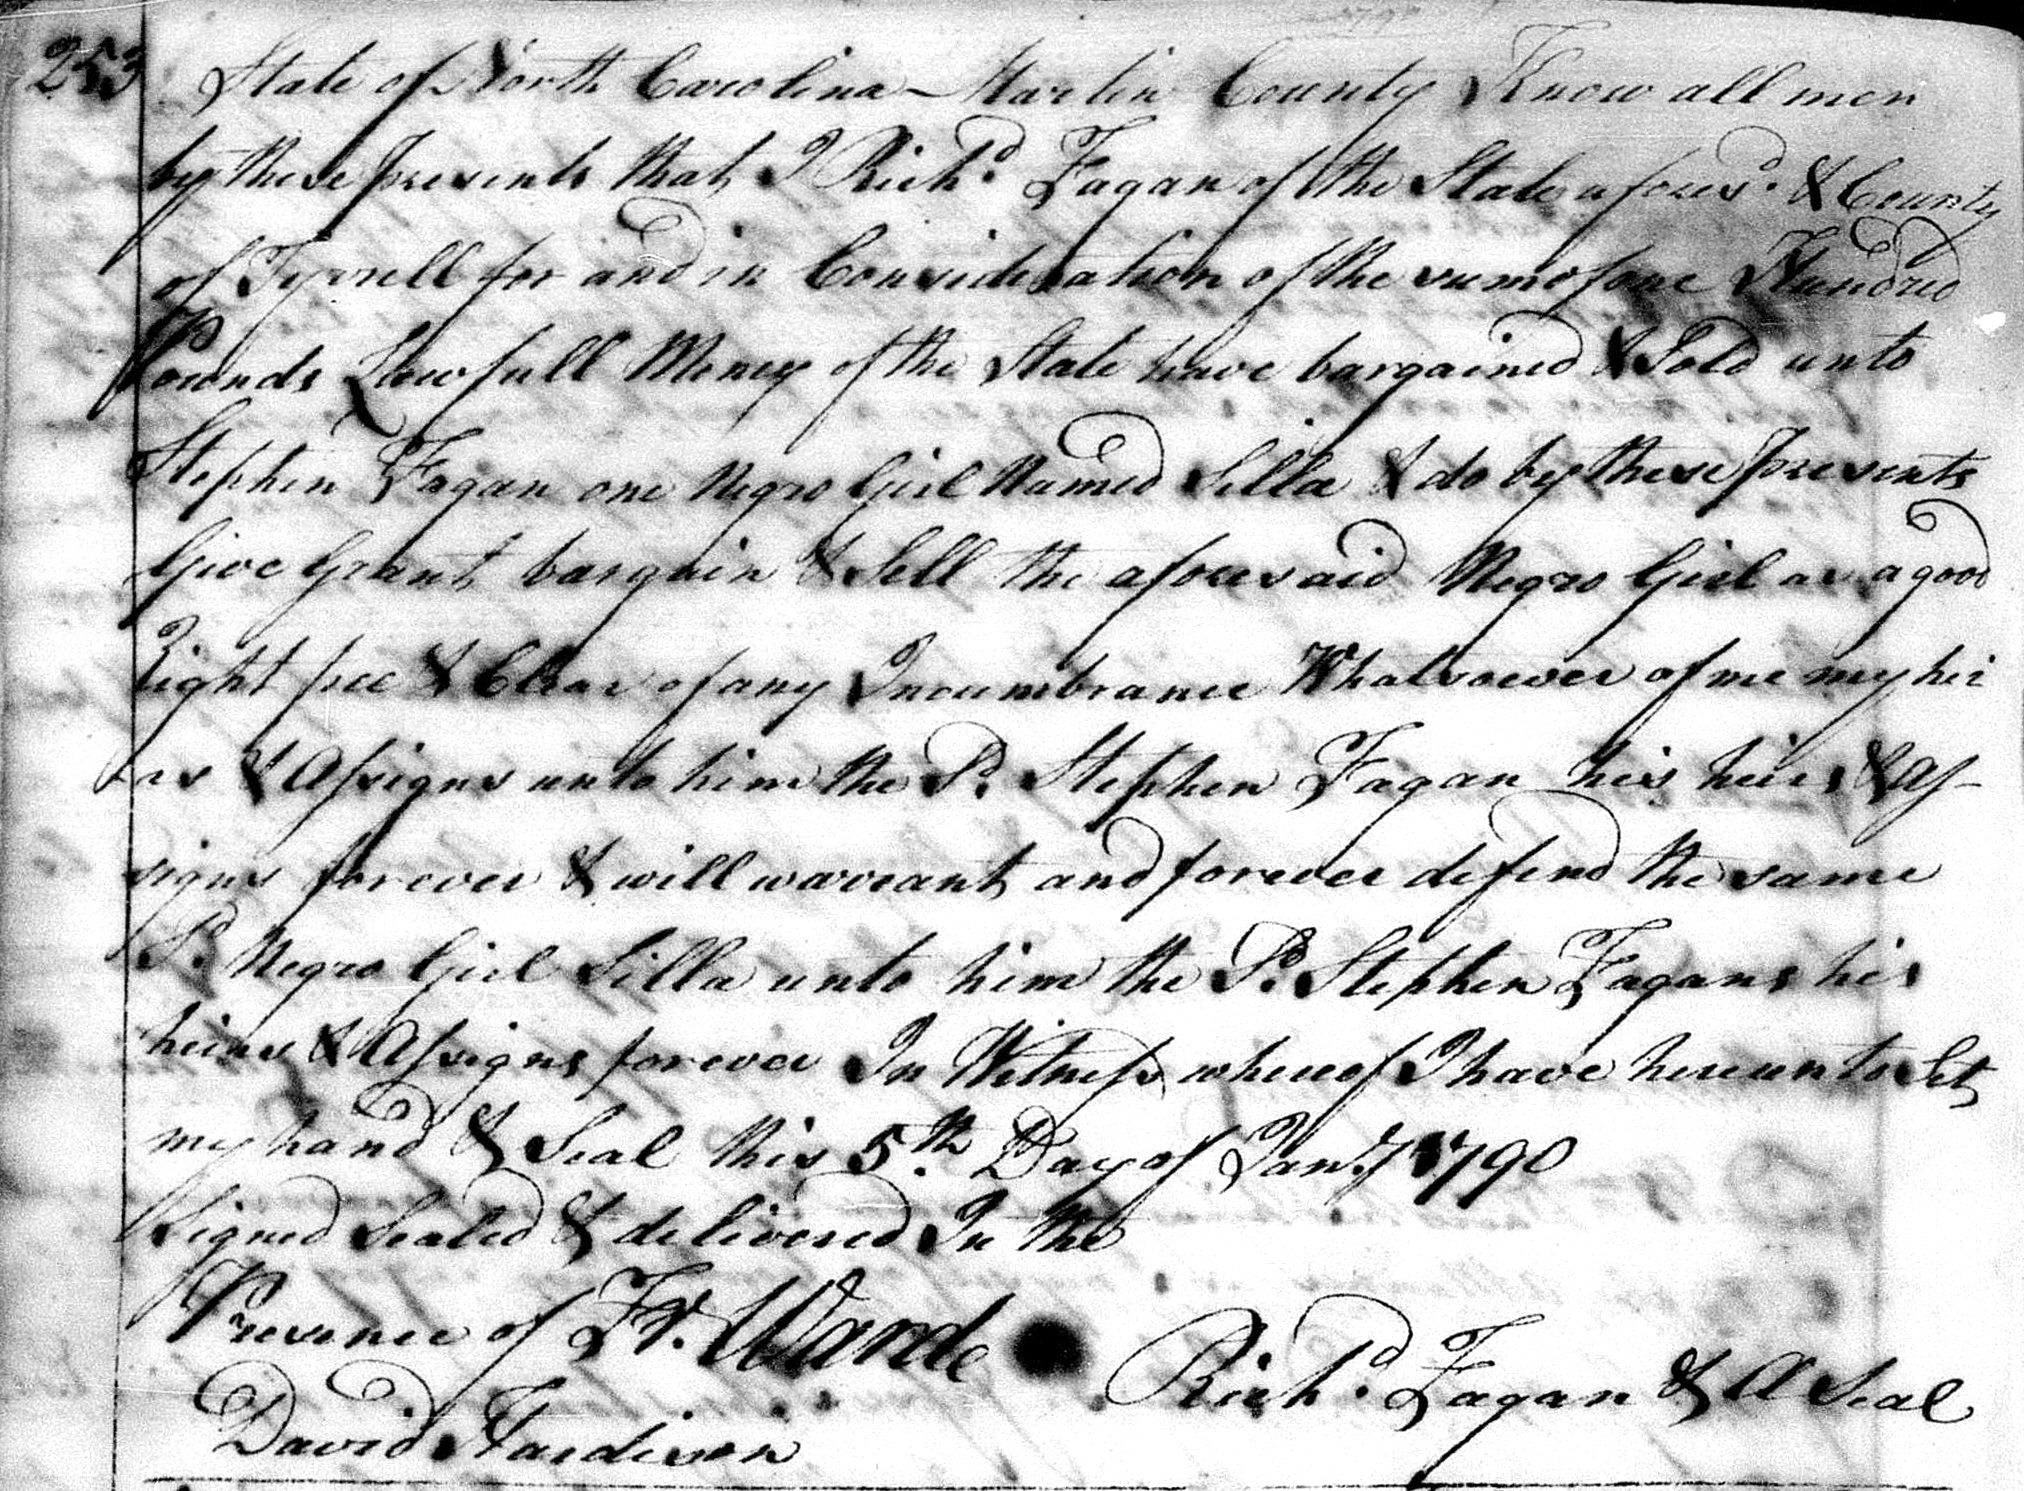 253 State of North Carolina Martin County Know all men
by these presents that I Richd. Fagan of the State aforesd. & County
of Tyrrell for and in Consideration of the sum of one Hundred
Pounds Lawfull Money of the State have bargained & Sold unto
Stephen Fagan one Negro Girl Named Silla & do by these presents
Give Grant bargain & Sell the aforesaid Negro Girl as a good
Right free & Clear of any Incumbrance Whatsoever of me my hei
ars & Assigns unto him the Sd. Stephen Fagan his heirs & As-
signs forever & will warrant and forever defend the same
Sd. Negro Girl Silla unto him the Sd. Stephen Fagans his
heirs & Assigns forever In Witness whereof I have hereunto Set
my hand & Seal this 5th. Day of Jany. 1790
Signed Sealed & delivered In the
Presence of Fr. Warde
Richd. Fagan & A Seal
David Hardison